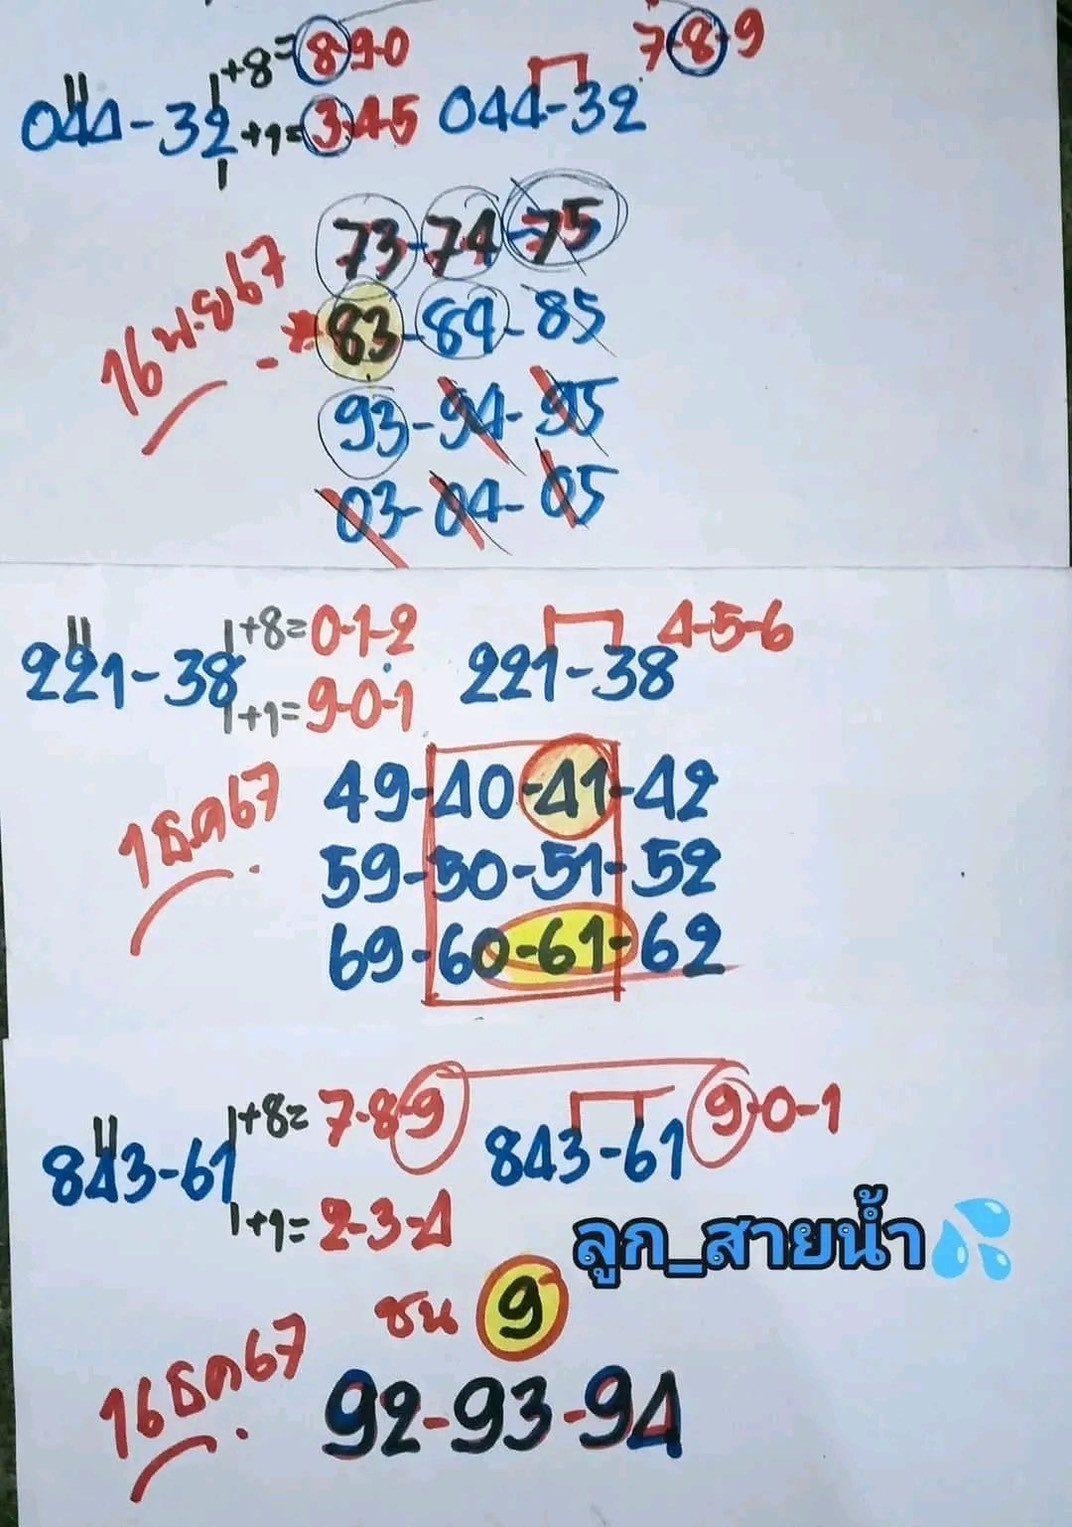 +8=8-9-0 7-8-9
044-32 +1=3-4-5 044-32
73-74-75
16 พ.ย 67 83-84-85
93-94-95
03-04-05
+8=0-1-2 4-5-6
221-38 221-38
+1=9-0-1
1 ธค 67 49-40-41-42
59-50-51-52
69-60-61-62
+8=7-8-9 9-0-1
843-61 843-61
+1=2-3-4
ลูก_สายน้ำ
ชน 9
16 ธค 67 92-93-94